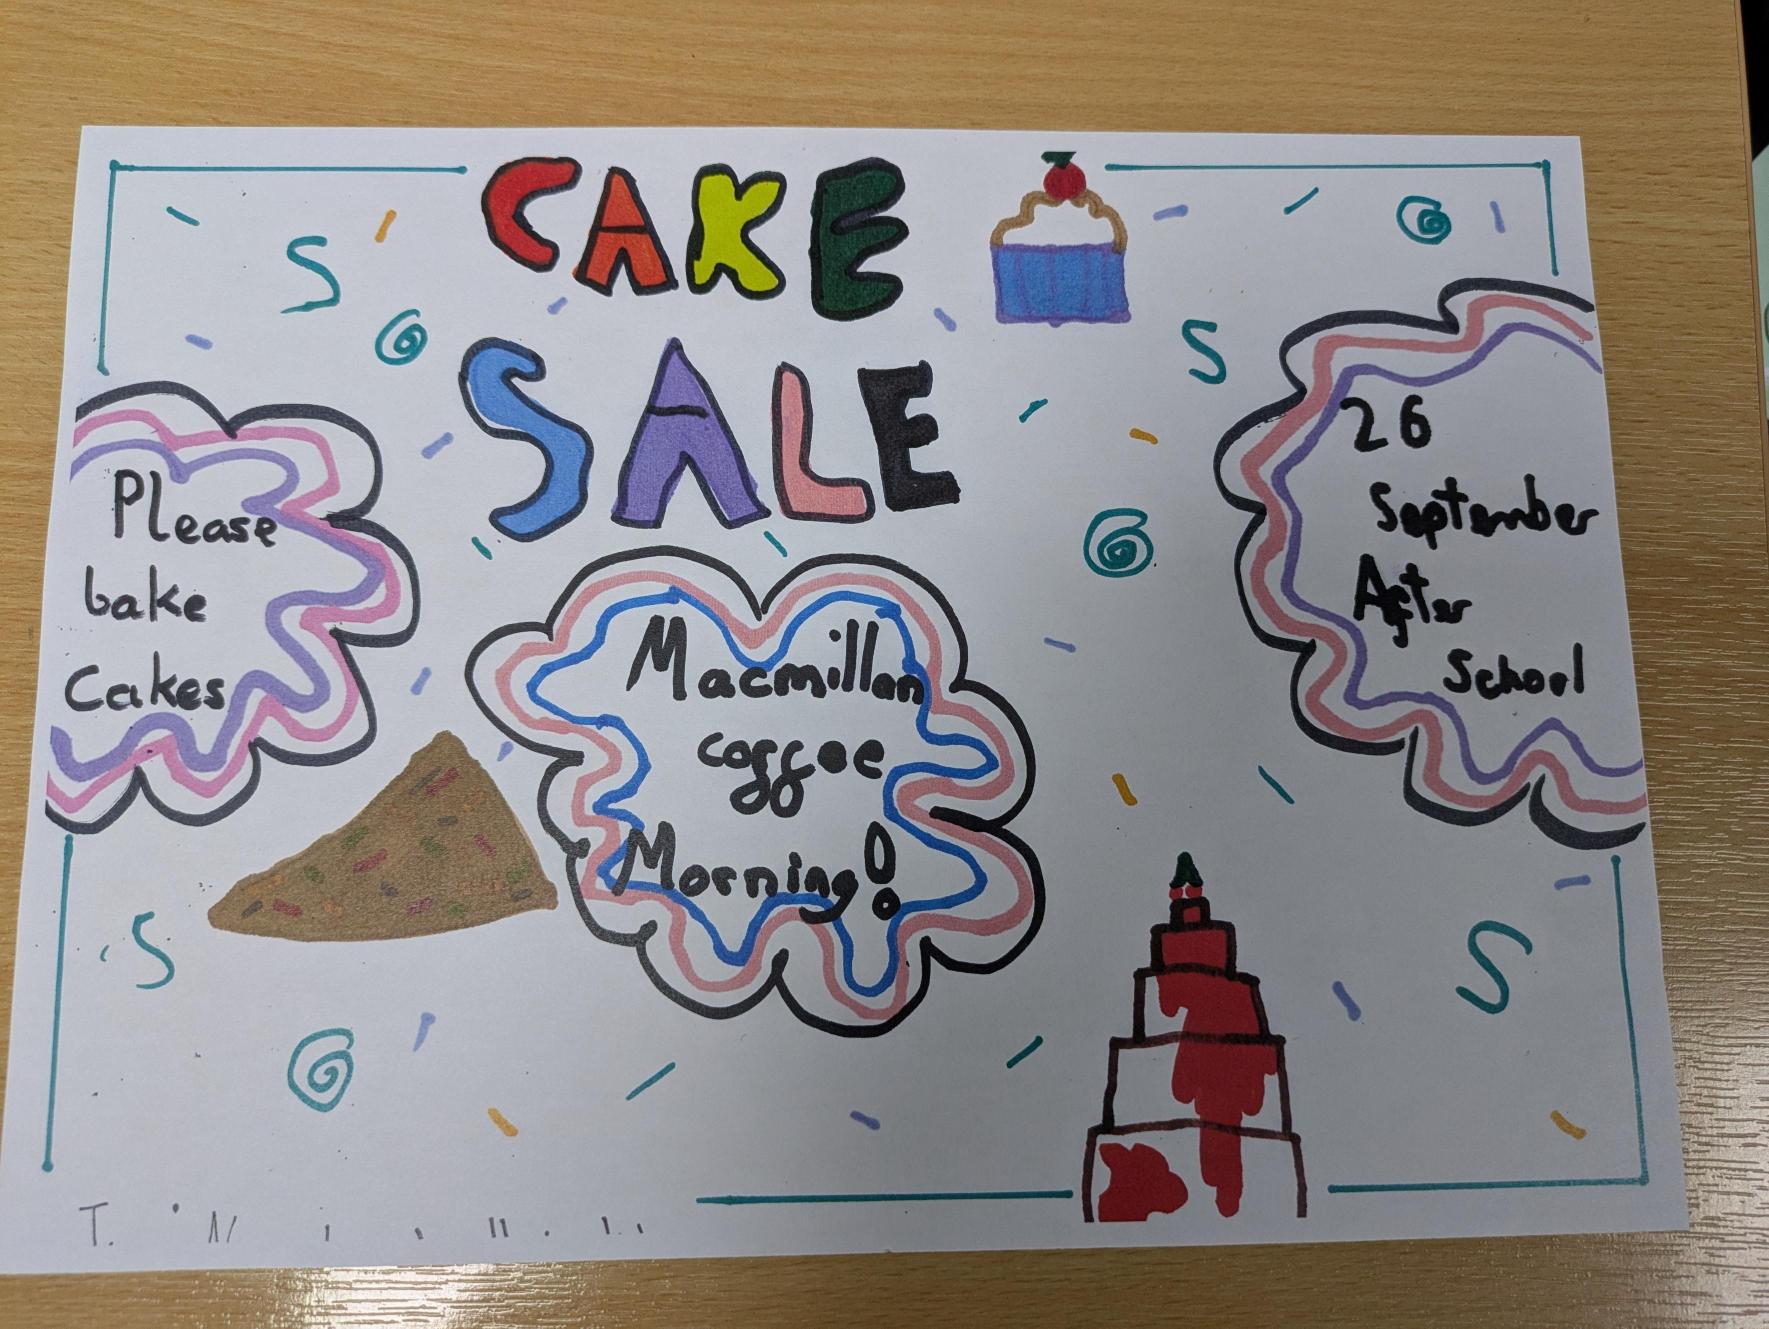 CAKE
SALE
Please
bake
Cakes
Macmillan
coffee
Morning!
26
September
After
School